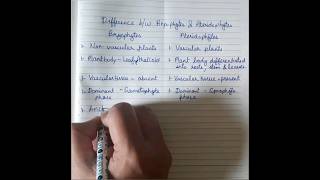 Difference b/w Bryophytes & Pteridophytes
Bryophytes Pteridophytes
1. Non vascular plants 1. Vascular plants
2. Plant body - leafy/thalloid 2. Plant body differentiated
into roots, stem & leaves
3. Vascular tissue - absent 3. Vascular tissue - present
4. Dominant - Gametophyte 4. Dominant - Sporophyte
phase phase